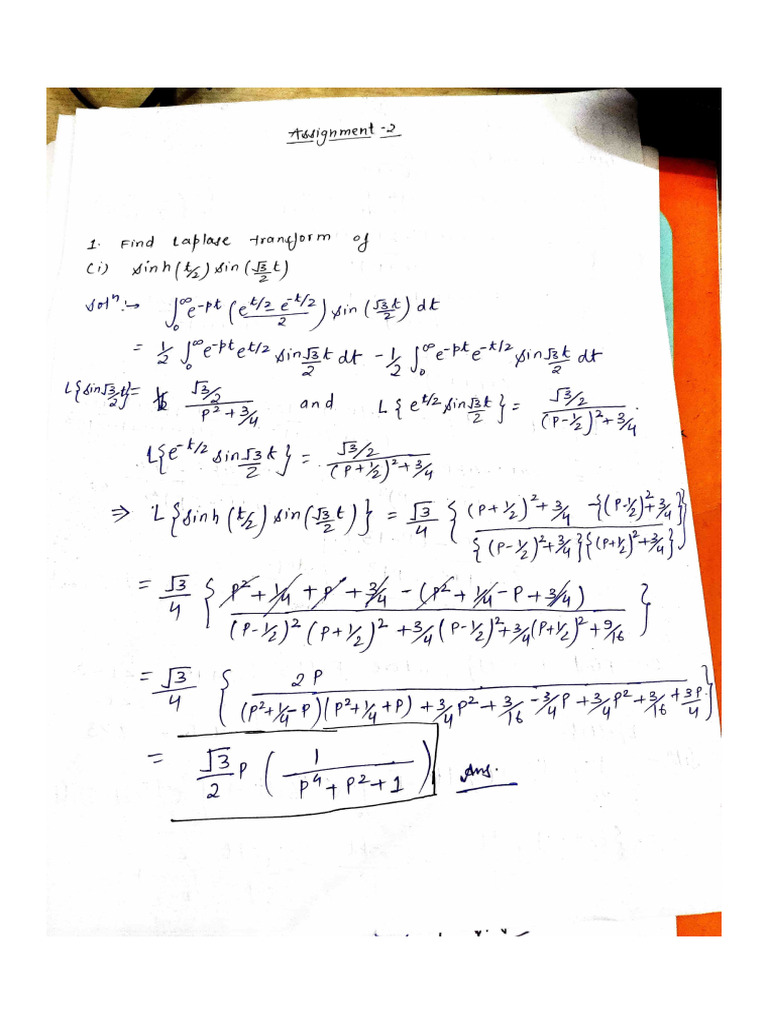 Assignment-2
1. Find Laplase transform of
(i) sinh(t/2) sin(√3/2 t)
Solⁿ:→ ∫₀^∞ e^-pt (e^t/2 e^-t/2 / 2) sin(√3t/2) dt
= 1/2 ∫₀^∞ e^-pt e^t/2 sin √3t/2 dt - 1/2 ∫₀^∞ e^-pt e^-t/2 sin √3t/2 dt
L{sin √3t/2} = √3/2 / p²+3/4 and L{e^t/2 sin √3t/2} = √3/2 / (p-1/2)²+3/4.
L{e^-t/2 sin √3t/2} = √3/2 / (p+1/2)²+3/4
⇒ L{sinh(t/2) sin(√3/2 t)} = √3/4 { (p+1/2)²+3/4 -{(p-1/2)²+3/4} / {(p-1/2)²+3/4}{(p+1/2)²+3/4} }
= √3/4 { p²+1/4+p+3/4-(p²+1/4-p+3/4) / (p-1/2)²(p+1/2)²+3/4(p-1/2)²+3/4(p+1/2)²+9/16 }
= √3/4 { 2p / (p²+1/4-p)(p²+1/4+p)+3/4p²+3/16-3/4p+3/4p²+3/16+3p/4 }
= √3/2 p ( 1 / p⁴+p²+1 ) Ans.